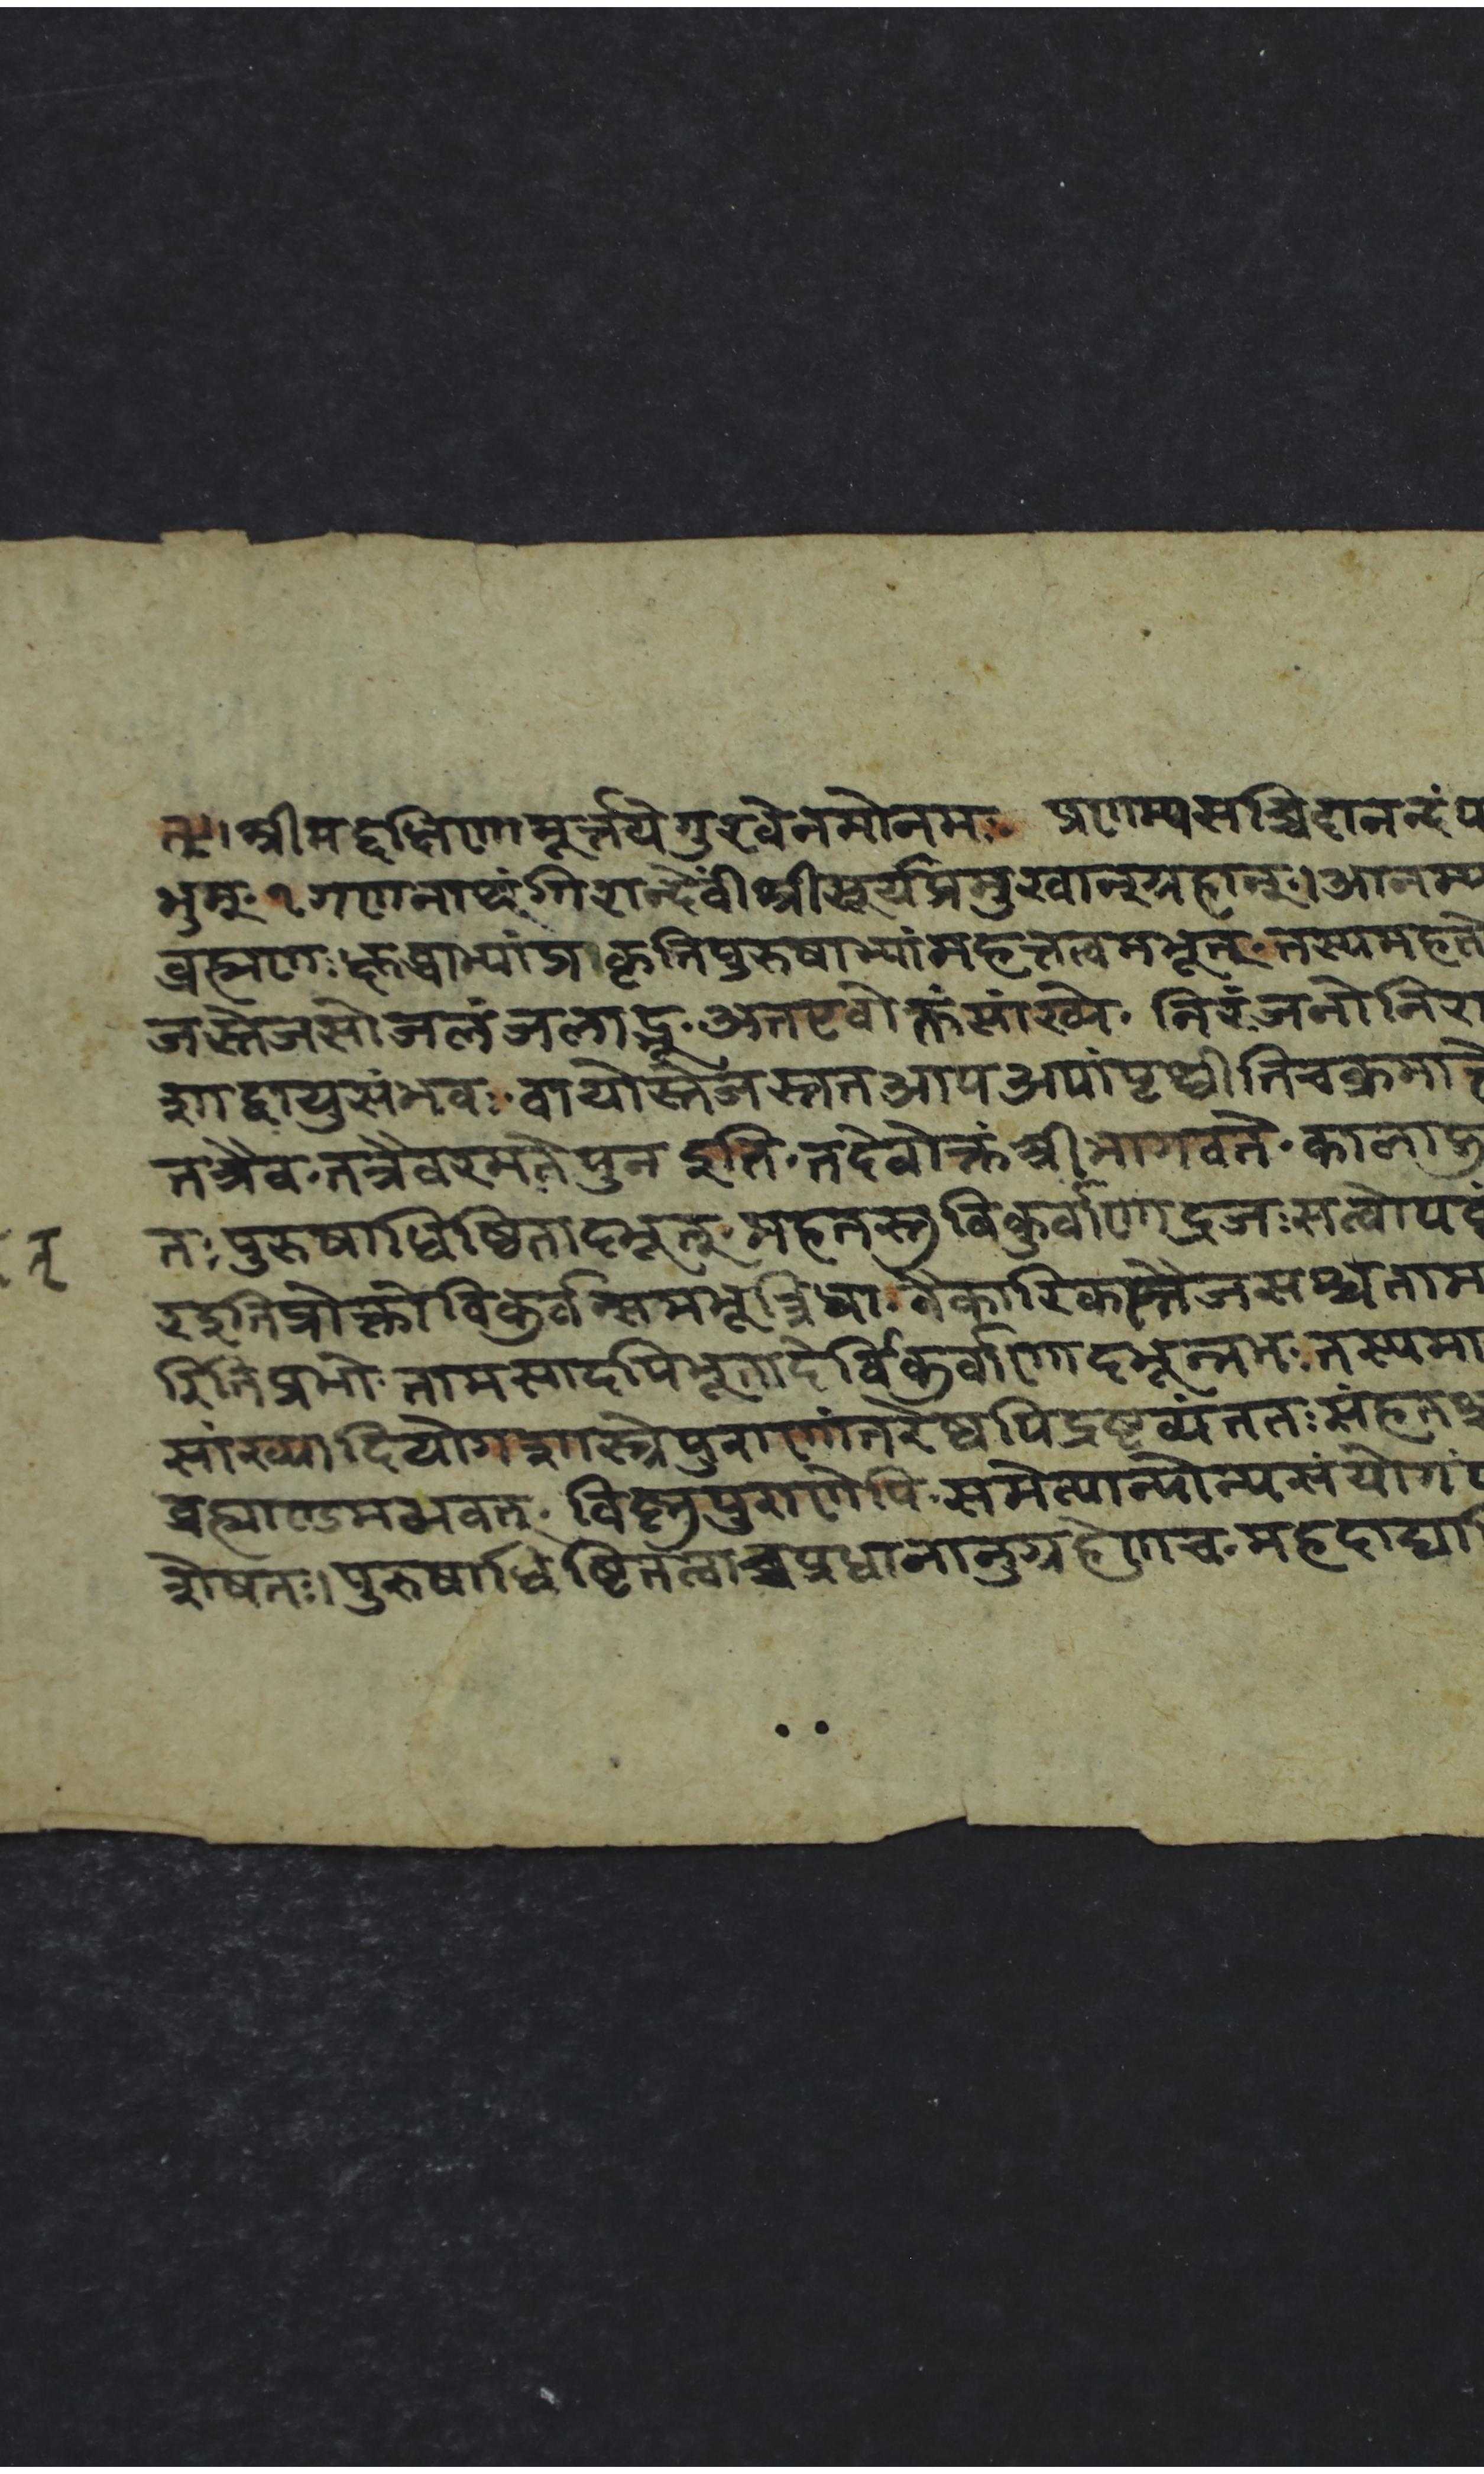 श्रीमद्दक्षिणामूर्त्तयेगुरवेनमोनमः प्रणम्यसच्चिदानन्दंप
भुम्॰१गणनाथंगिरान्देवींश्रीसूर्यप्रमुखान्ग्रहान्।आनम्य
ब्रह्मणः प्रकृतिपुरुषाभ्यांमहत्तत्वमभूत्॰तस्यमहतो
जस्तेजसोजलंजलाद्भू॰अतएवोक्तंसांख्ये॰निरंजनोनिरा
शाद्वायुसंभवः॰वायोस्तेजस्ततआपअपांपृथ्वीतिचक्रमात्
तत्रैव॰तत्रैवरमतेपुनइति॰तदेवोक्तंश्रीभागवते॰काला
तः॰पुरुषाधिष्ठितादभूत्॰महतस्तुविकुर्वाणाद्रजःसत्वोपबृं
रइतिप्रोक्तोविकुर्वन्समभूत्रिधा॰वैकारिकस्तैजसश्चताम
रितिप्रभोः॰तामसादपिभूतादेर्विकुर्वाणादभून्नभः॰तस्यमा
सांख्यादियोगशास्त्रेपुराणांतरेष्वपिद्रष्टव्यंततःसंहत
ब्रह्माण्डमभवत्॰विष्णुपुराणेपि॰समेत्यान्योन्यसंयोगं
शेषतः।पुरुषाधिष्टितत्वाच्चप्रधानानुग्रहेणच॰महदाद्या